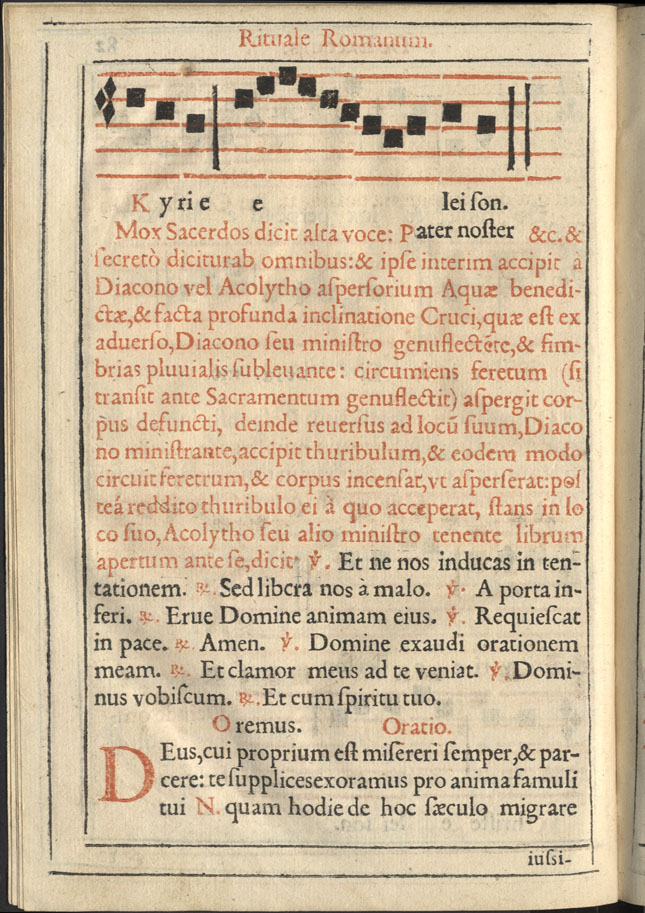 Rituale Romanum.
Kyrie e leiſon.
Mox Sacerdos dicit alta voce: Pater noſter &c. &
ſecretò diciturab omnibus:& ipſe interim accipit à
Diacono vel Acolytho aſperſorium Aquæ benedi-
ctæ,& facta profunda inclinatione Cruci,quæ eſt ex
aduerſo,Diacono ſeu miniſtro genuflectẽte,& fim-
brias pluuialis ſubleuante: circumiens feretum (ſi
tranſit ante Sacramentum genuflectit) aſpergit cor-
pus defuncti, deinde reuerſus ad locũ ſuum,Diaco
no miniſtrante,accipit thuribulum,& eodem modo
circuit feretrum,& corpus incenſat,vt aſperſerat:poſ
teá reddito thuribulo ei à quo acceperat, ſtans in lo
co ſuo,Acolytho ſeu alio miniſtro tenente librum
apertum ante ſe,dicit ℣. Et ne nos inducas in ten-
tationem. ℟. Sed libera nos à malo. ℣. A porta in-
feri. ℟. Erue Domine animam eius. ℣. Requieſcat
in pace. ℟. Amen. ℣. Domine exaudi orationem
meam. ℟. Et clamor meus ad te veniat. ℣. Domi-
nus vobiſcum. ℟. Et cum ſpiritu tuo.
Oremus. Oratio.
DEus,cui proprium eſt miſereri ſemper,& par-
cere: te ſupplices exoramus pro anima famuli
tui N. quam hodie de hoc ſæculo migrare
iuſsi-